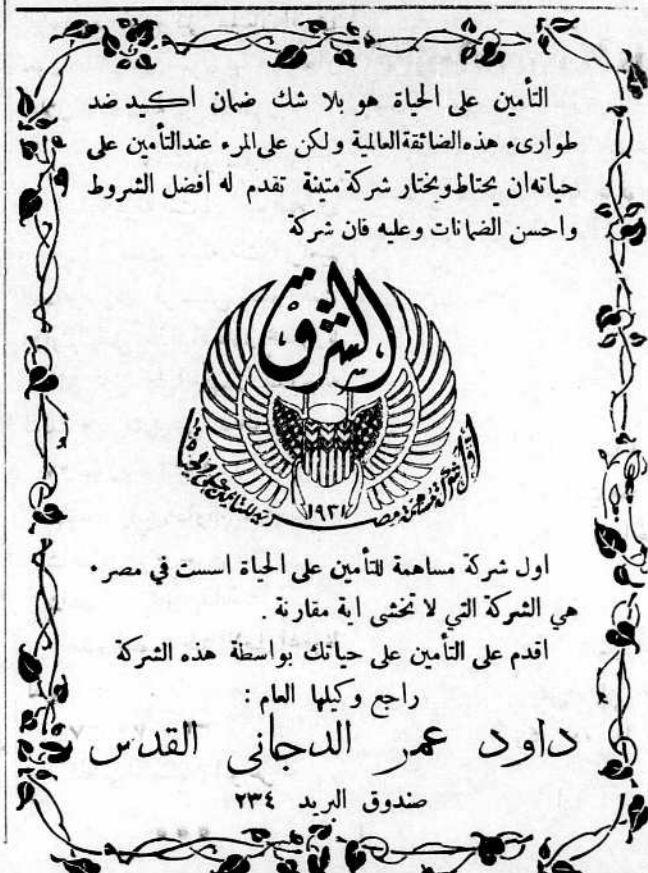 التأمين على الحياة هو بلا شك ضمان اكيد ضد
طوارىء هذه الضائقة العالمية ولكن على المرء عند التأمين على
حياته ان يحتاط ويختار شركة متينة تقدم له افضل الشروط
واحسن الضمانات وعليه فان شركة
الشرق
١٩٣١
اول شركة مساهمة للتأمين على الحياة اسست في مصر .
هي الشركة التي لا تخشى اية مقارنة .
اقدم على التأمين على حياتك بواسطة هذه الشركة
راجع وكيلها العام :
داود عمر الدجاني القدس
صندوق البريد ٢٣٤